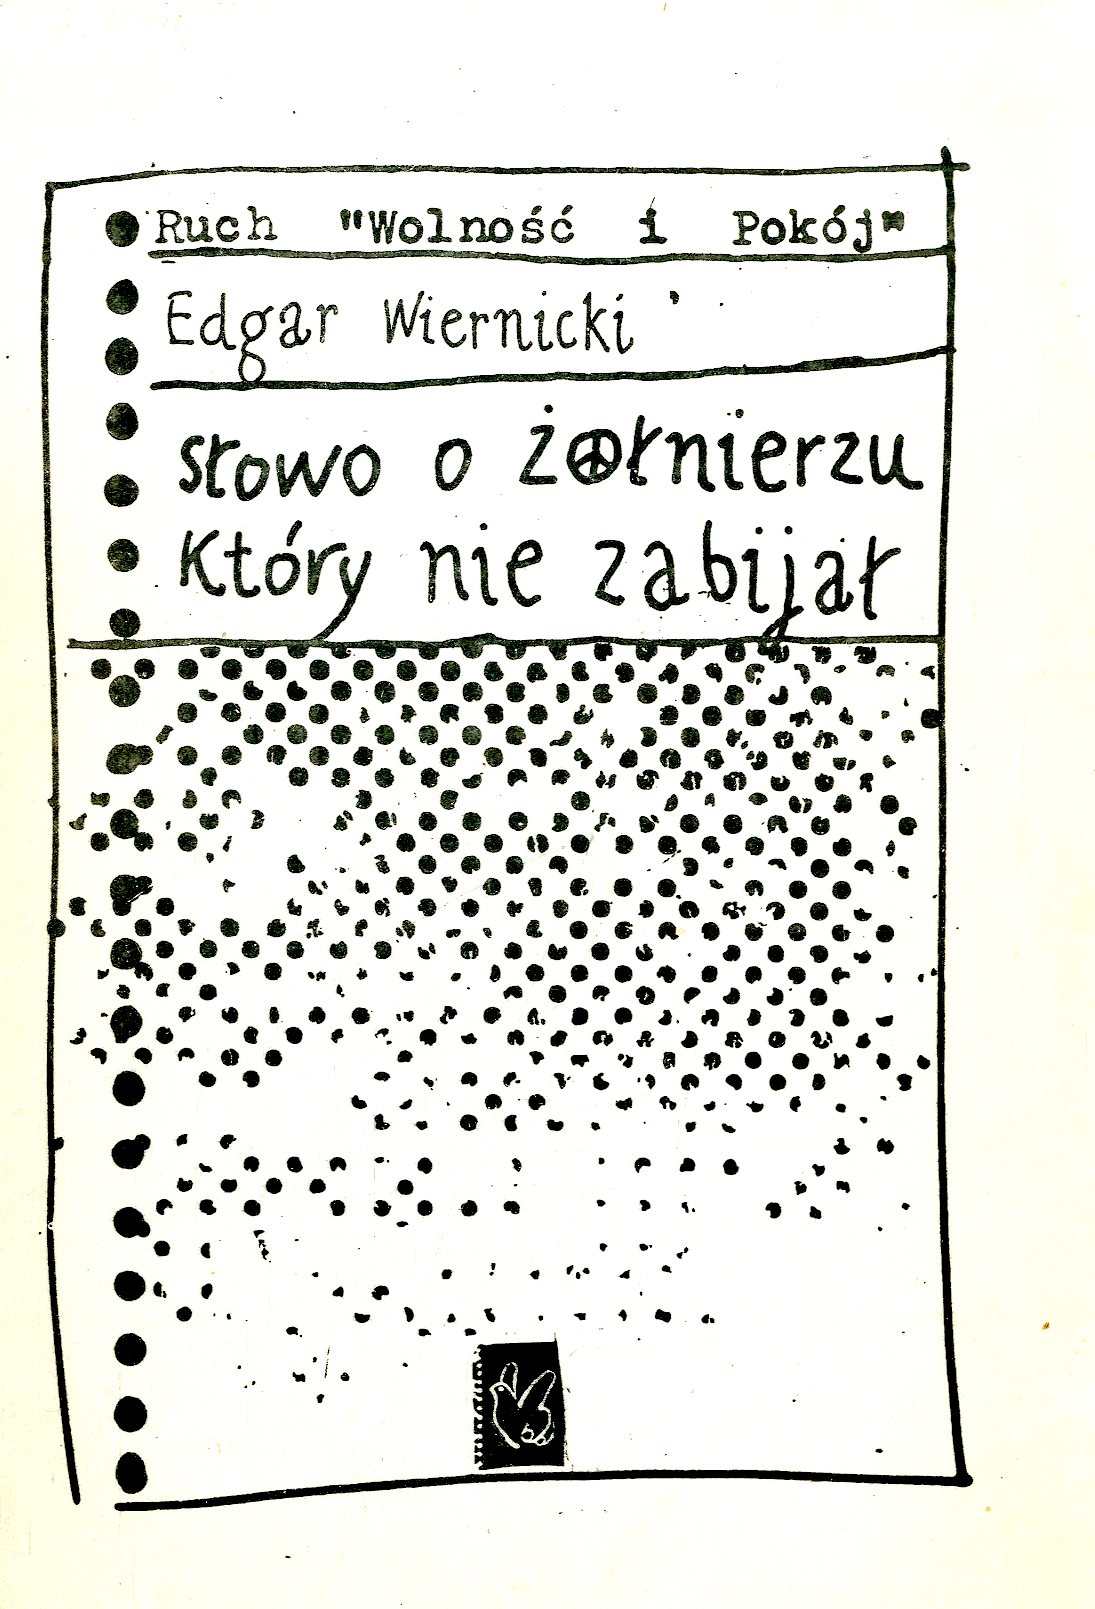 Ruch "Wolność i Pokój"
Edgar Wiernicki
słowo o żołnierzu
Który nie zabijał